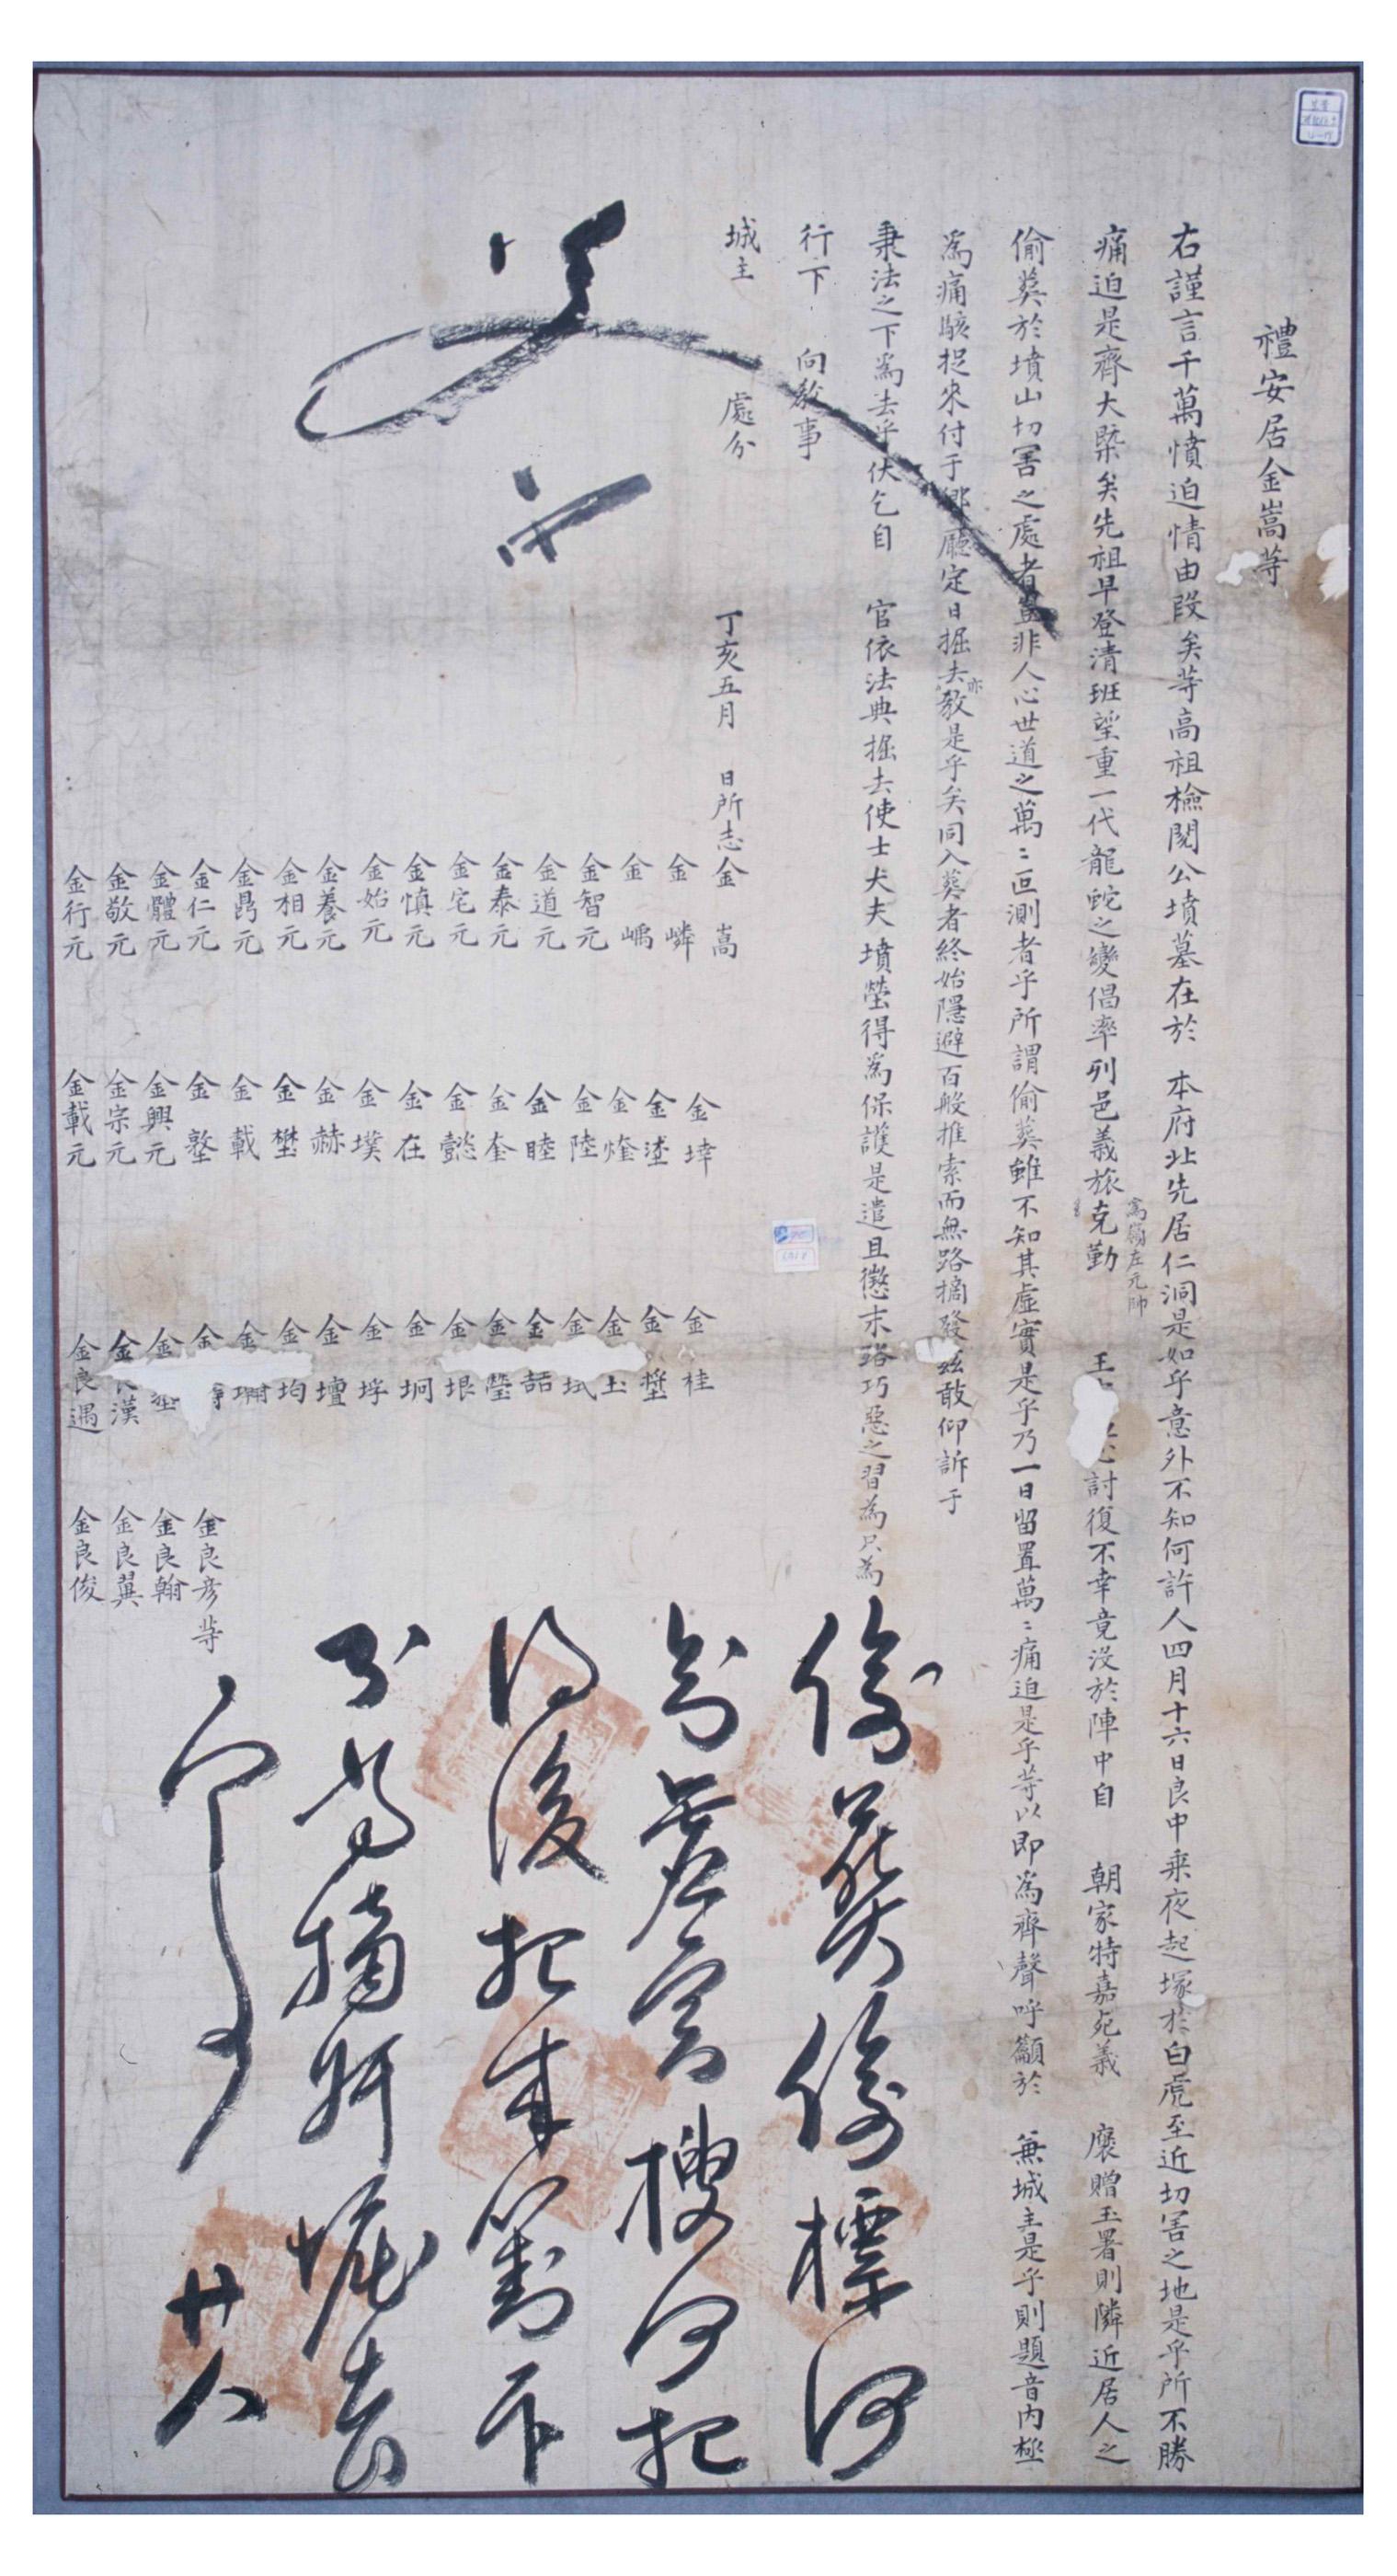 禮安居金嵩等
右謹言千萬憤迫情由段矣等高祖檢閱公墳墓在於 本府北先居仁洞是如乎意外不知何許人四月十六日良中乘夜起塚於白虎至近切害之地是乎所不勝
痛迫是齊大槩矣先祖早登清班望重一代龍蛇之變倡率列邑義旅克勤 王 心討復不幸竟沒於陣中自 朝家特嘉死義 褒贈玉署則隣近居人之
爲嶺左元帥
偷葬於墳山切害之處者豈非人心世道之萬〻叵測者乎所謂偷葬雖不知其虛實是乎乃一日留置萬〻痛迫是乎等以卽爲齊聲呼籲於 兼城主是乎則題音內極
爲痛駭捉來付于鄕廳定日掘去亦敎是乎矣同入葬者終始隱避百般推索而無路摘發玆敢仰訴于
秉法之下爲去乎伏乞自 官依法典掘去使士夫夫墳塋得爲保護是遣且懲末路巧惡之習爲只爲
行下 向敎事
城主 處分
丁亥五月 日所志金嵩
金嶙
金㠇
金智元
金道元
金泰元
金宅元
金愼元
金始元
金養元
金相元
金昻元
金仁元
金體元
金敬元
金行元
金㙉
金塗
金㷇
金陸
金睦
金奎
金懿
金在
金墣
金赫
金壄
金載
金墪
金興元
金宗元
金載元
金桂
金
金圡
金
金喆
金瑩
金垠
金坰
金垺
金壇
金均
金
金
金
金良漢
金良遇
金良彦等
金良翰
金良冀
金良俊
偷葬偷標何
知虛實搜何捉
得後捉來對卞
以爲摘奸掘去
向事
廿八